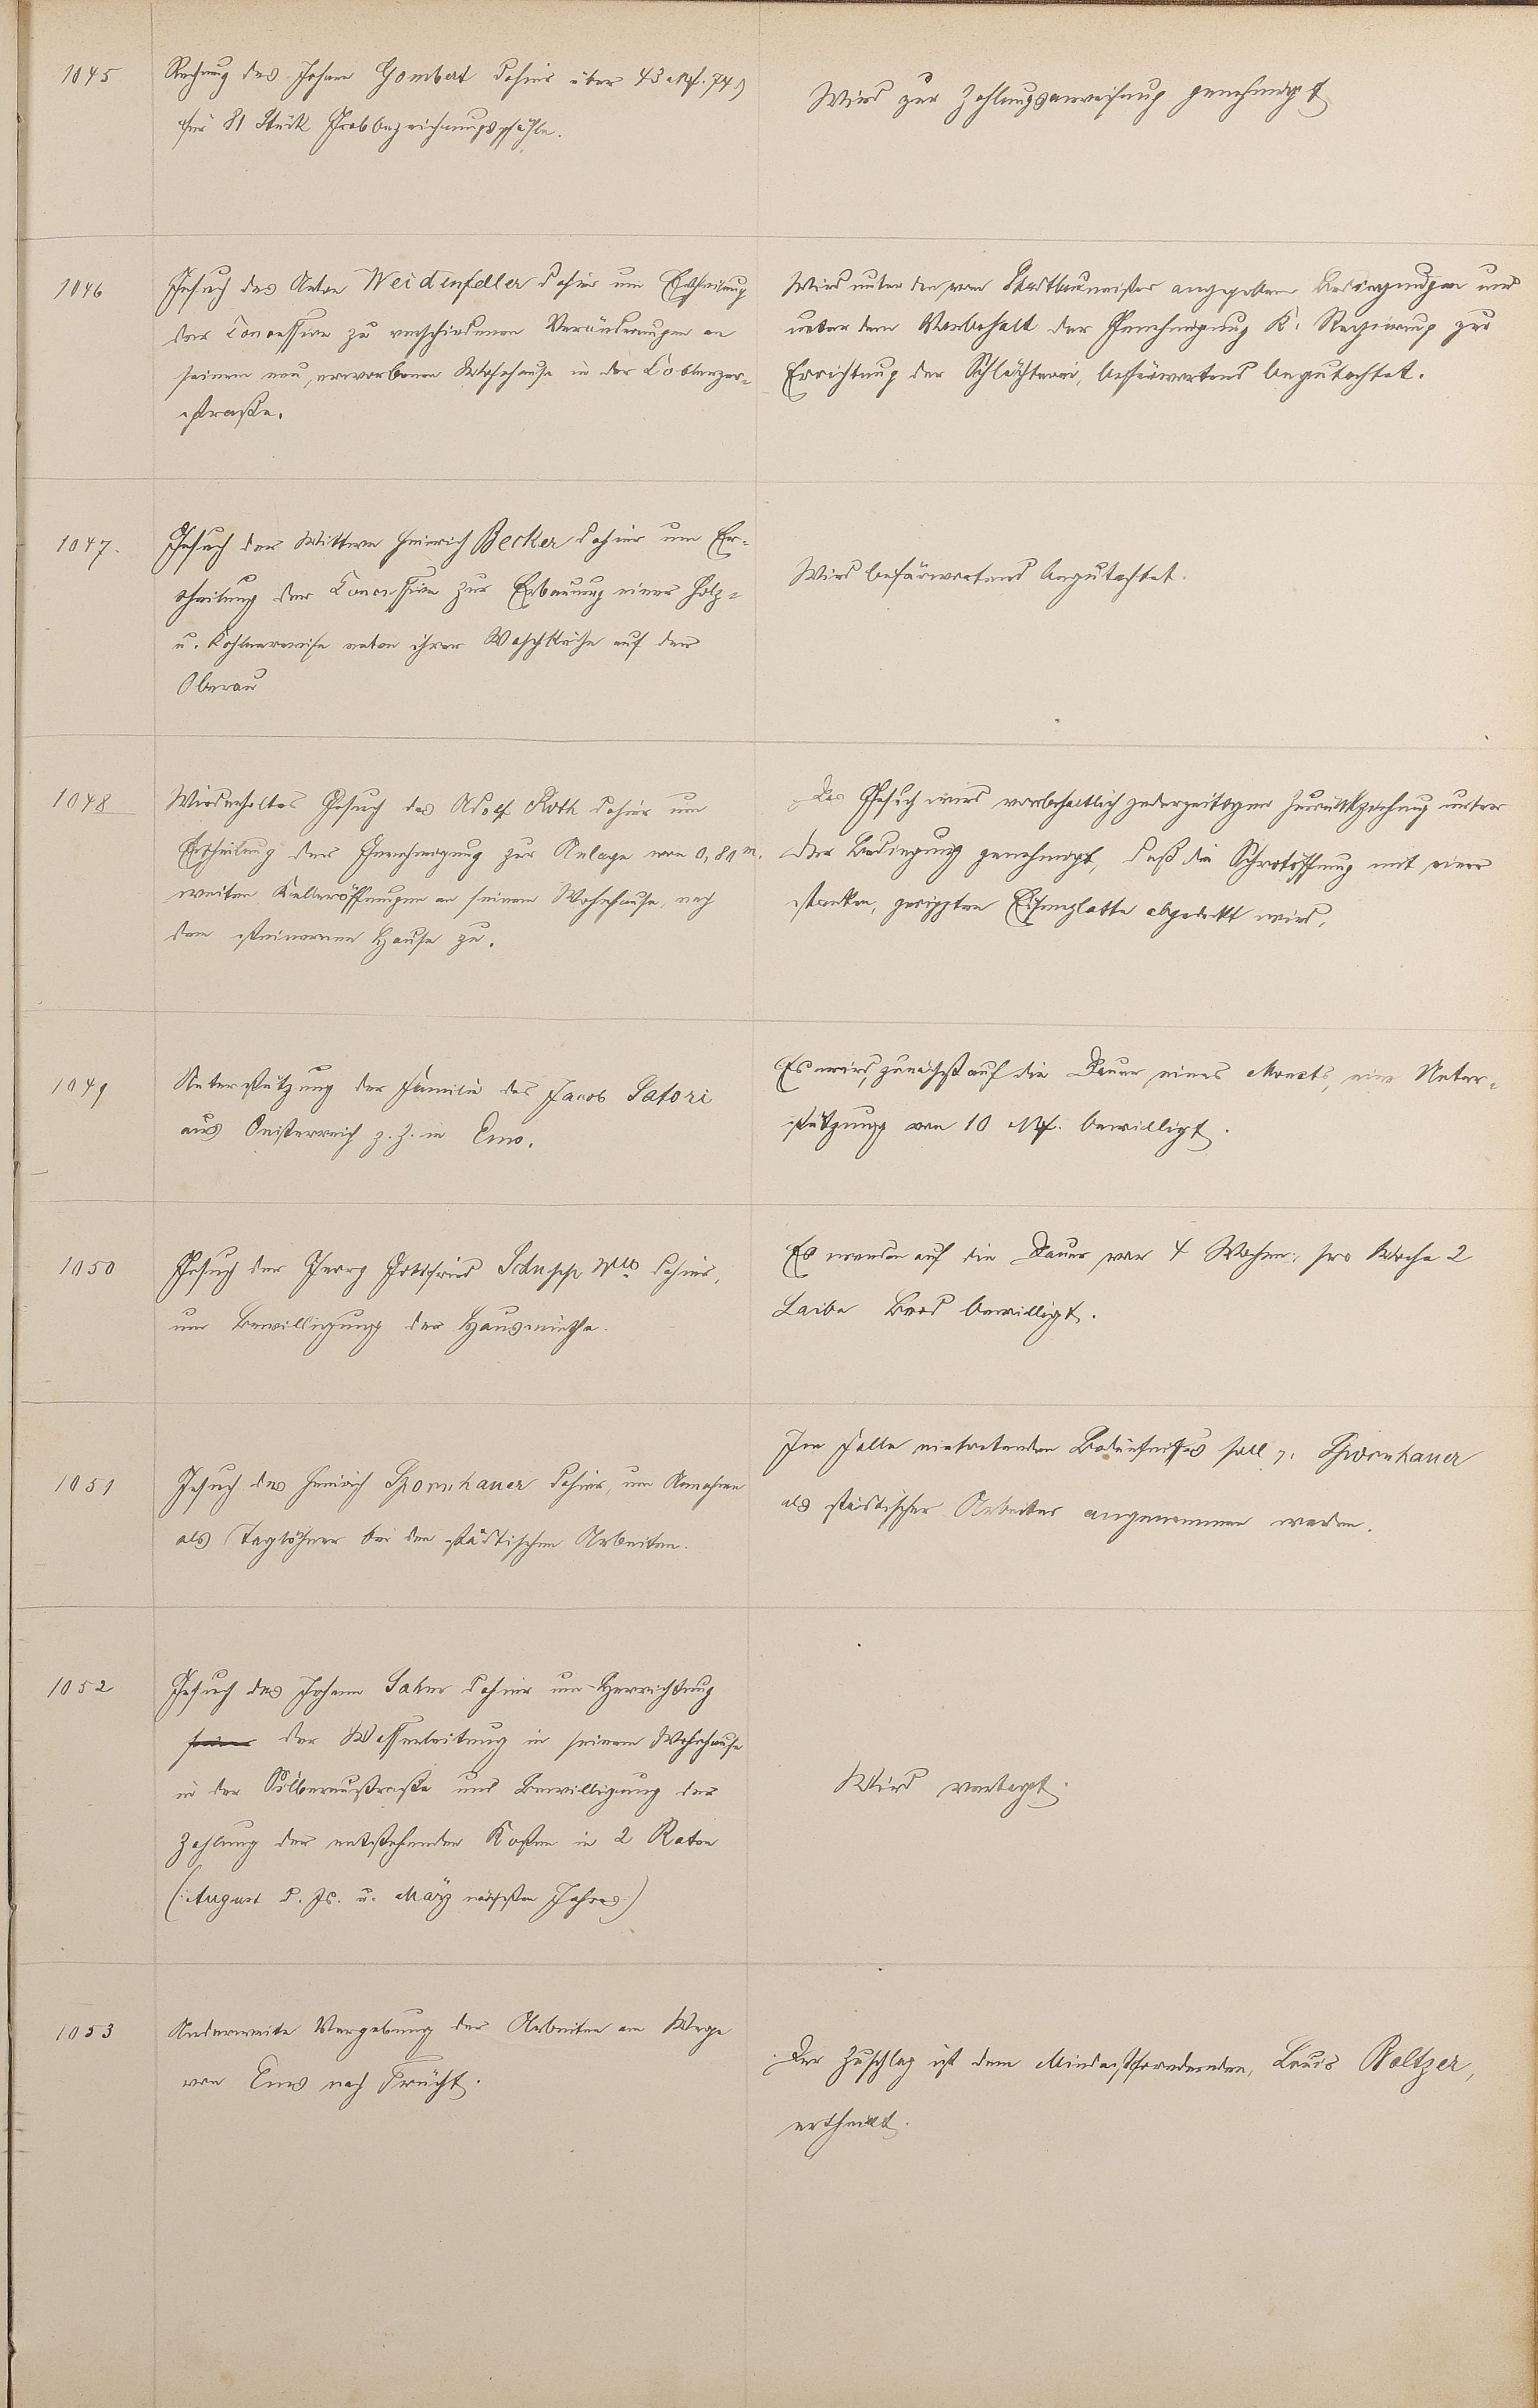 1045
Rechnung des Johann Gombert dahier über 43 Mk. 74 ₰
für 81 Stück Grabbezeichnungspfähle.
Wird zur Zahlungsanweisung genehmigt
1046
Gesuch des Anton Weidenfeller dahier um Ertheilung
der Concession zu verschiedenen Veränderungen an
seinem neu erworbenen Wohnhause in der Coblenzer-
straße.
Wird unter den vom Stadtbaumeister angegebenen Bedingungen und
unter dem Vorbehalt der Genehmigung K. Regierung zur
Errichtung der Schlächterei, befürwortend begutachtet.
1047.
Gesuch der Wittwe Heinrich Becker dahier um Er-
theilung der Concession zur Erbauung einer Holz-
u. Kohlenremise neben ihrer Waschküche auf der
Oberau
Wird befürwortend begutachtet.
1048
Wiederholtes Gesuch des Adolf Roth dahier um
Ertheilung der Genehmigung zur Anlage von 0,80 m.
weiten Kelleröffnungen an seinem Wohnhause, nach
dem steinernen Hause zu.
Das Gesuch wird vorbehaltlich jederzeitiger Zurückziehung unter
der Bedingung genehmigt, daß die Schrotöffnung mit einer
starken, gerippten Eisenplatte abgedeckt wird.
1049
Unterstützung der Familie des Jacob Satori
aus Oesterreich z. Z. in Ems.
Es wird, zunächst auf die Dauer eines Monats, eine Unter-
stützung von 10 Mk. bewilligt.
1050
Gesuch der Georg Gottfried Schupp Wwe dahier,
um Bewilligung der Hausmiethe.
Es werden auf die Dauer von 4 Wochen, pro Woche 2
Laibe Brod bewilligt.
1051
Gesuch des Heinrich Spornhauer dahier, um Annahme
als Taglöhner bei den städtischen Arbeiten.
Im Falle eintretenden Bedürfnisses soll p. Spornhauer
als städtischer Arbeiter angenommen werden.
1052
Gesuch des Johann Sahm dahier um Herrichtung
der Wasserleitung in seinem Wohnhause
in der Silberaustraße und Bewilligung der
Zahlung der entstehenden Kosten in 2 Raten
(: August d. Js. u. März nächsten Jahres)
Wird vertagt.
1053
Anderweite Vergebung der Arbeiten am Wege
von Ems nach Frücht.
Der Zuschlag ist dem Mindestfordernden, Louis Baltzer,
ertheilt.